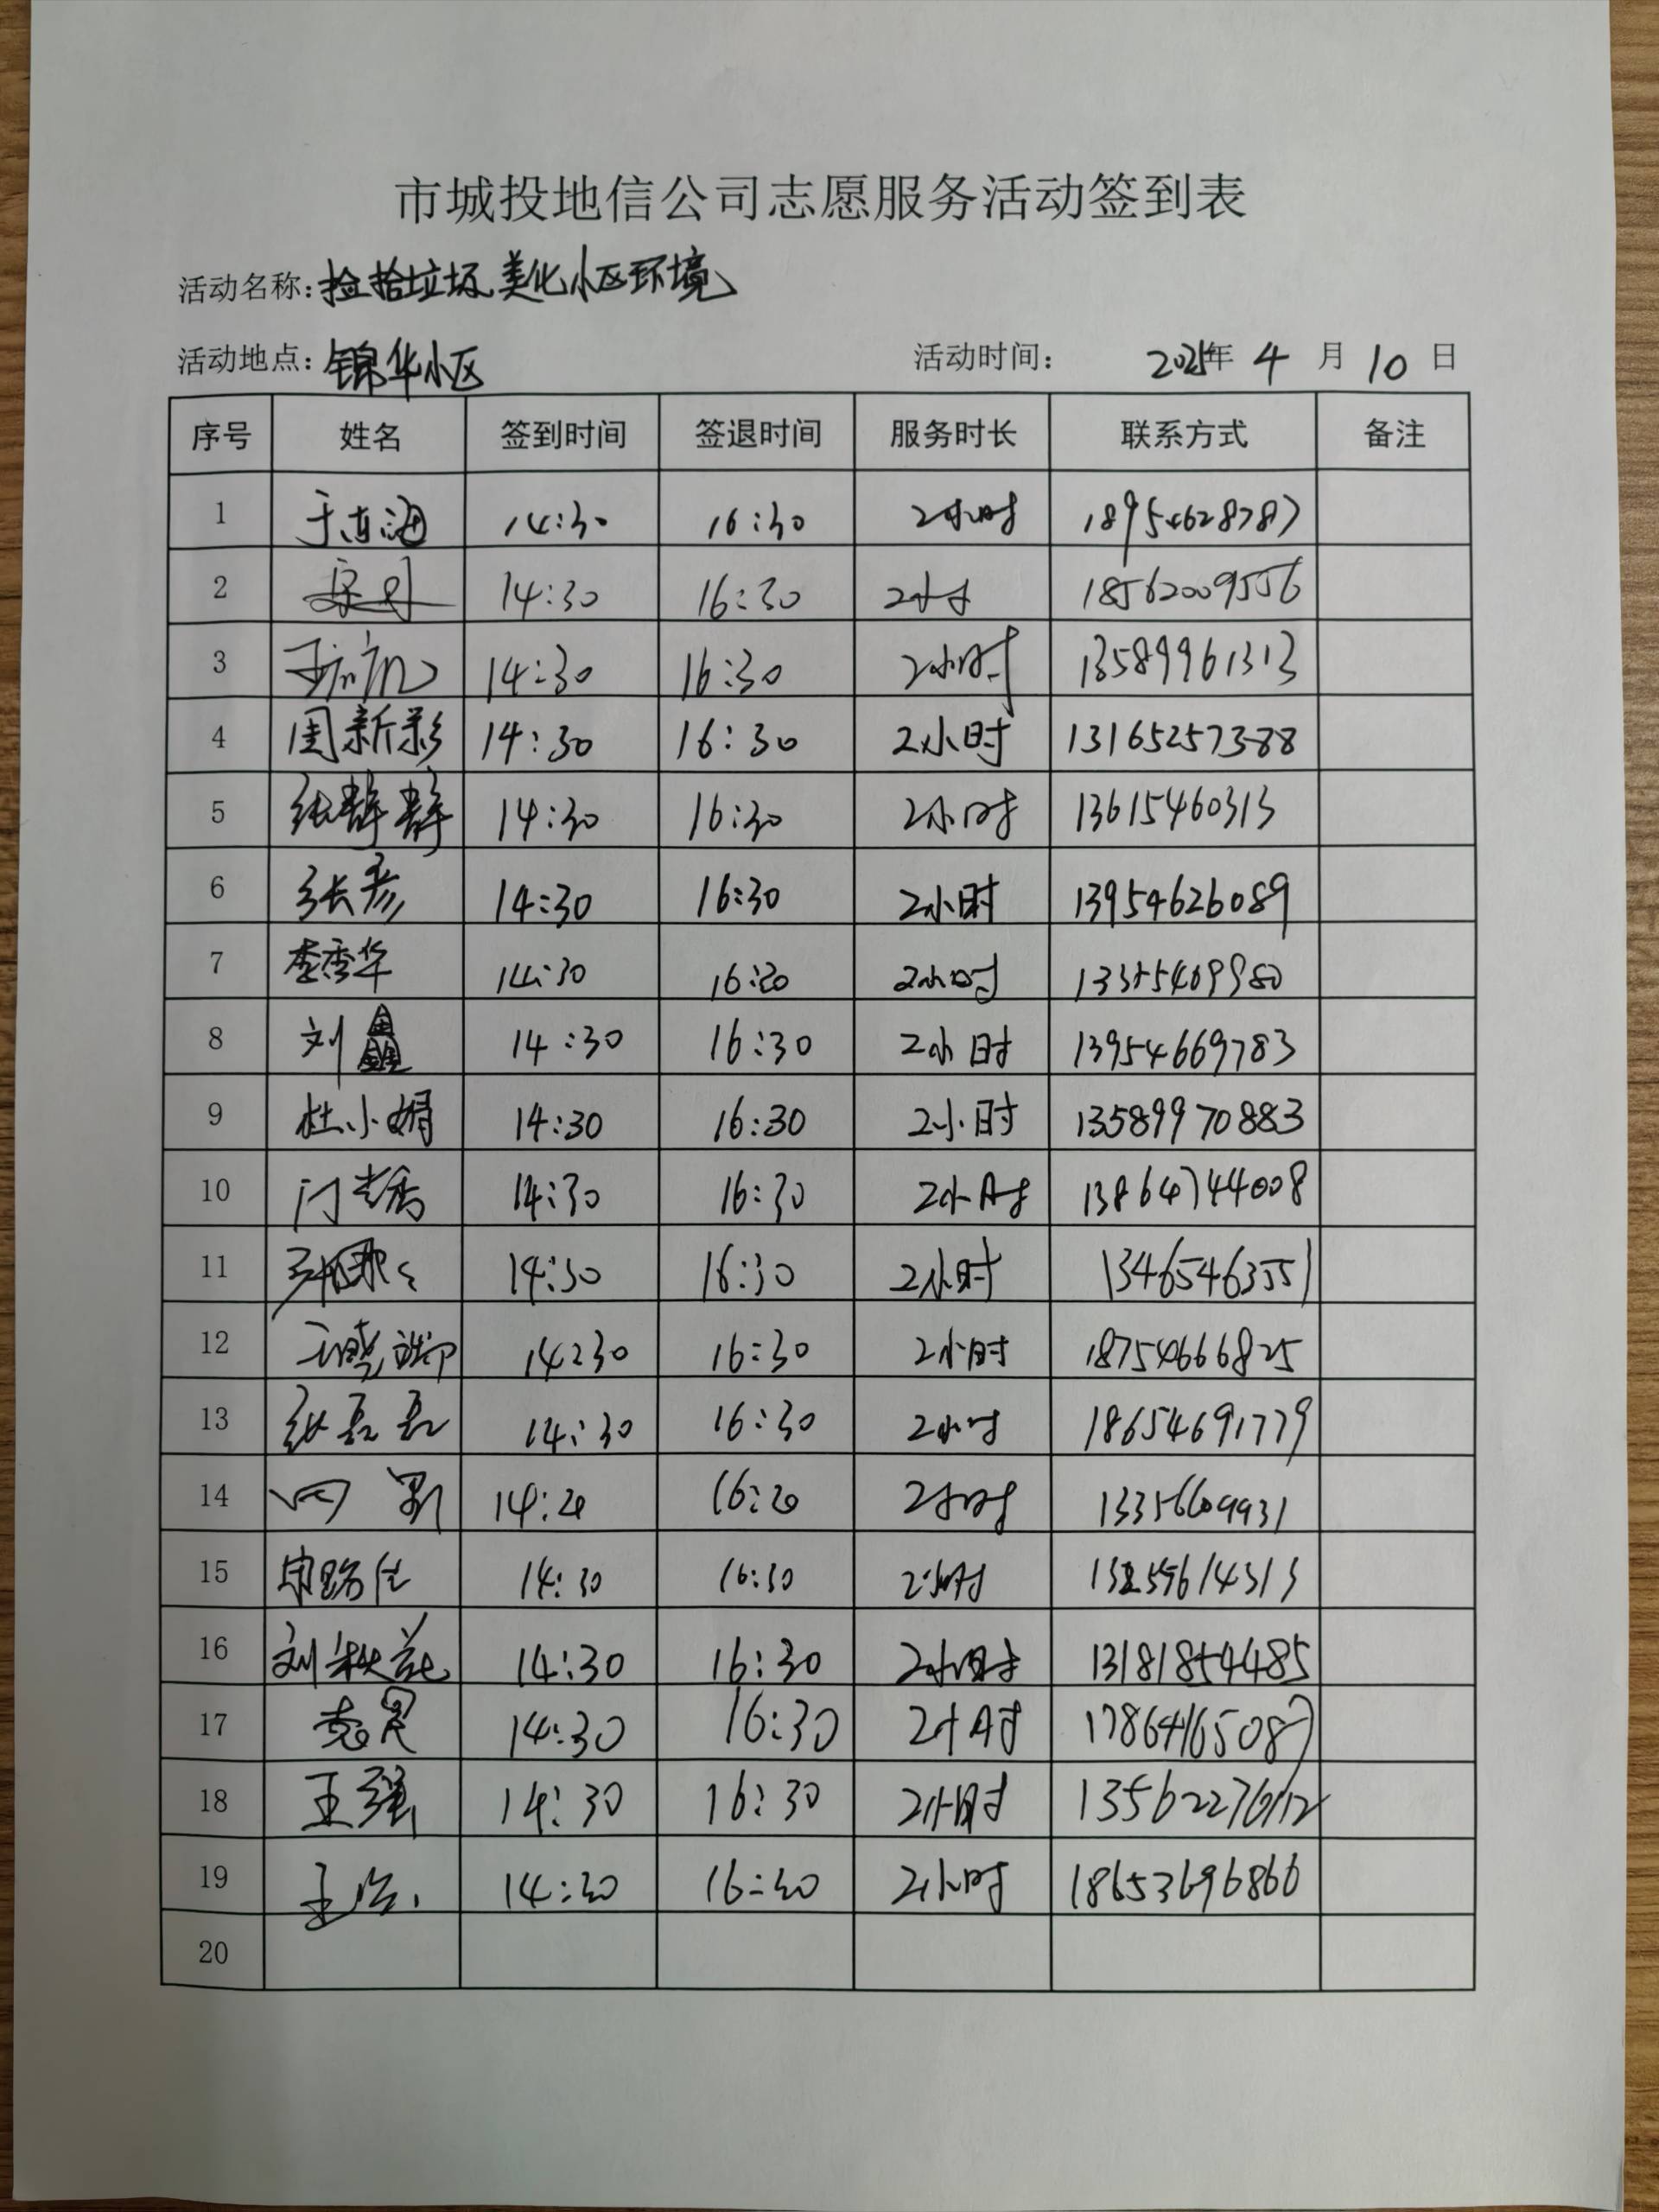 市城投地信公司志愿服务活动签到表
活动名称：捡拾垃圾美化小区环境
活动地点：锦华小区 活动时间： 2025年 4 月 10 日
序号 姓名 签到时间 签退时间 服务时长 联系方式 备注
1 于东海 14:30 16:30 2小时 18954628787
2 14:30 16:30 2小时 18562009556
3 14:30 16:30 2小时 13589961313
4 周新彩 14:30 16:30 2小时 13165257388
5 张静静 14:30 16:30 2小时 13615460313
6 张彦 14:30 16:30 2小时 13954626089
7 李秀华 14:30 16:30 2小时 13355469980
8 刘鑫 14:30 16:30 2小时 13954669783
9 杜小娟 14:30 16:30 2小时 13589970883
10 门 14:30 16:30 2小时 13864744008
11 14:30 16:30 2小时 13465463551
12 14:30 16:30 2小时 18754666825
13 张磊磊 14:30 16:30 2小时 18654691779
14 14:30 16:30 2小时 13356609931
15 14:30 16:30 2小时
16 刘秋花 14:30 16:30 2小时 13181854485
17 袁昊 14:30 16:30 2小时 17864165087
18 王强 14:30 16:30 2小时
19 王 14:30 16:30 2小时 18653696866
20